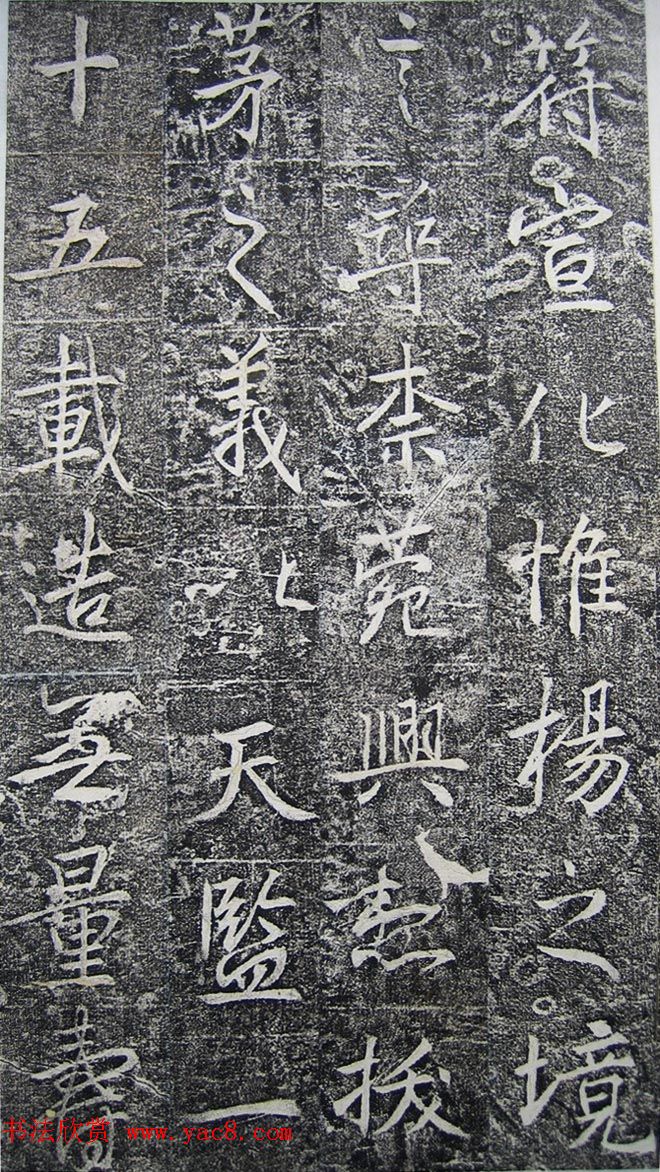 符宣化惟楊之境
言尋柰苑興拔
茅之義以天監一
十五載造無量壽
书法欣赏 www.yac8.com